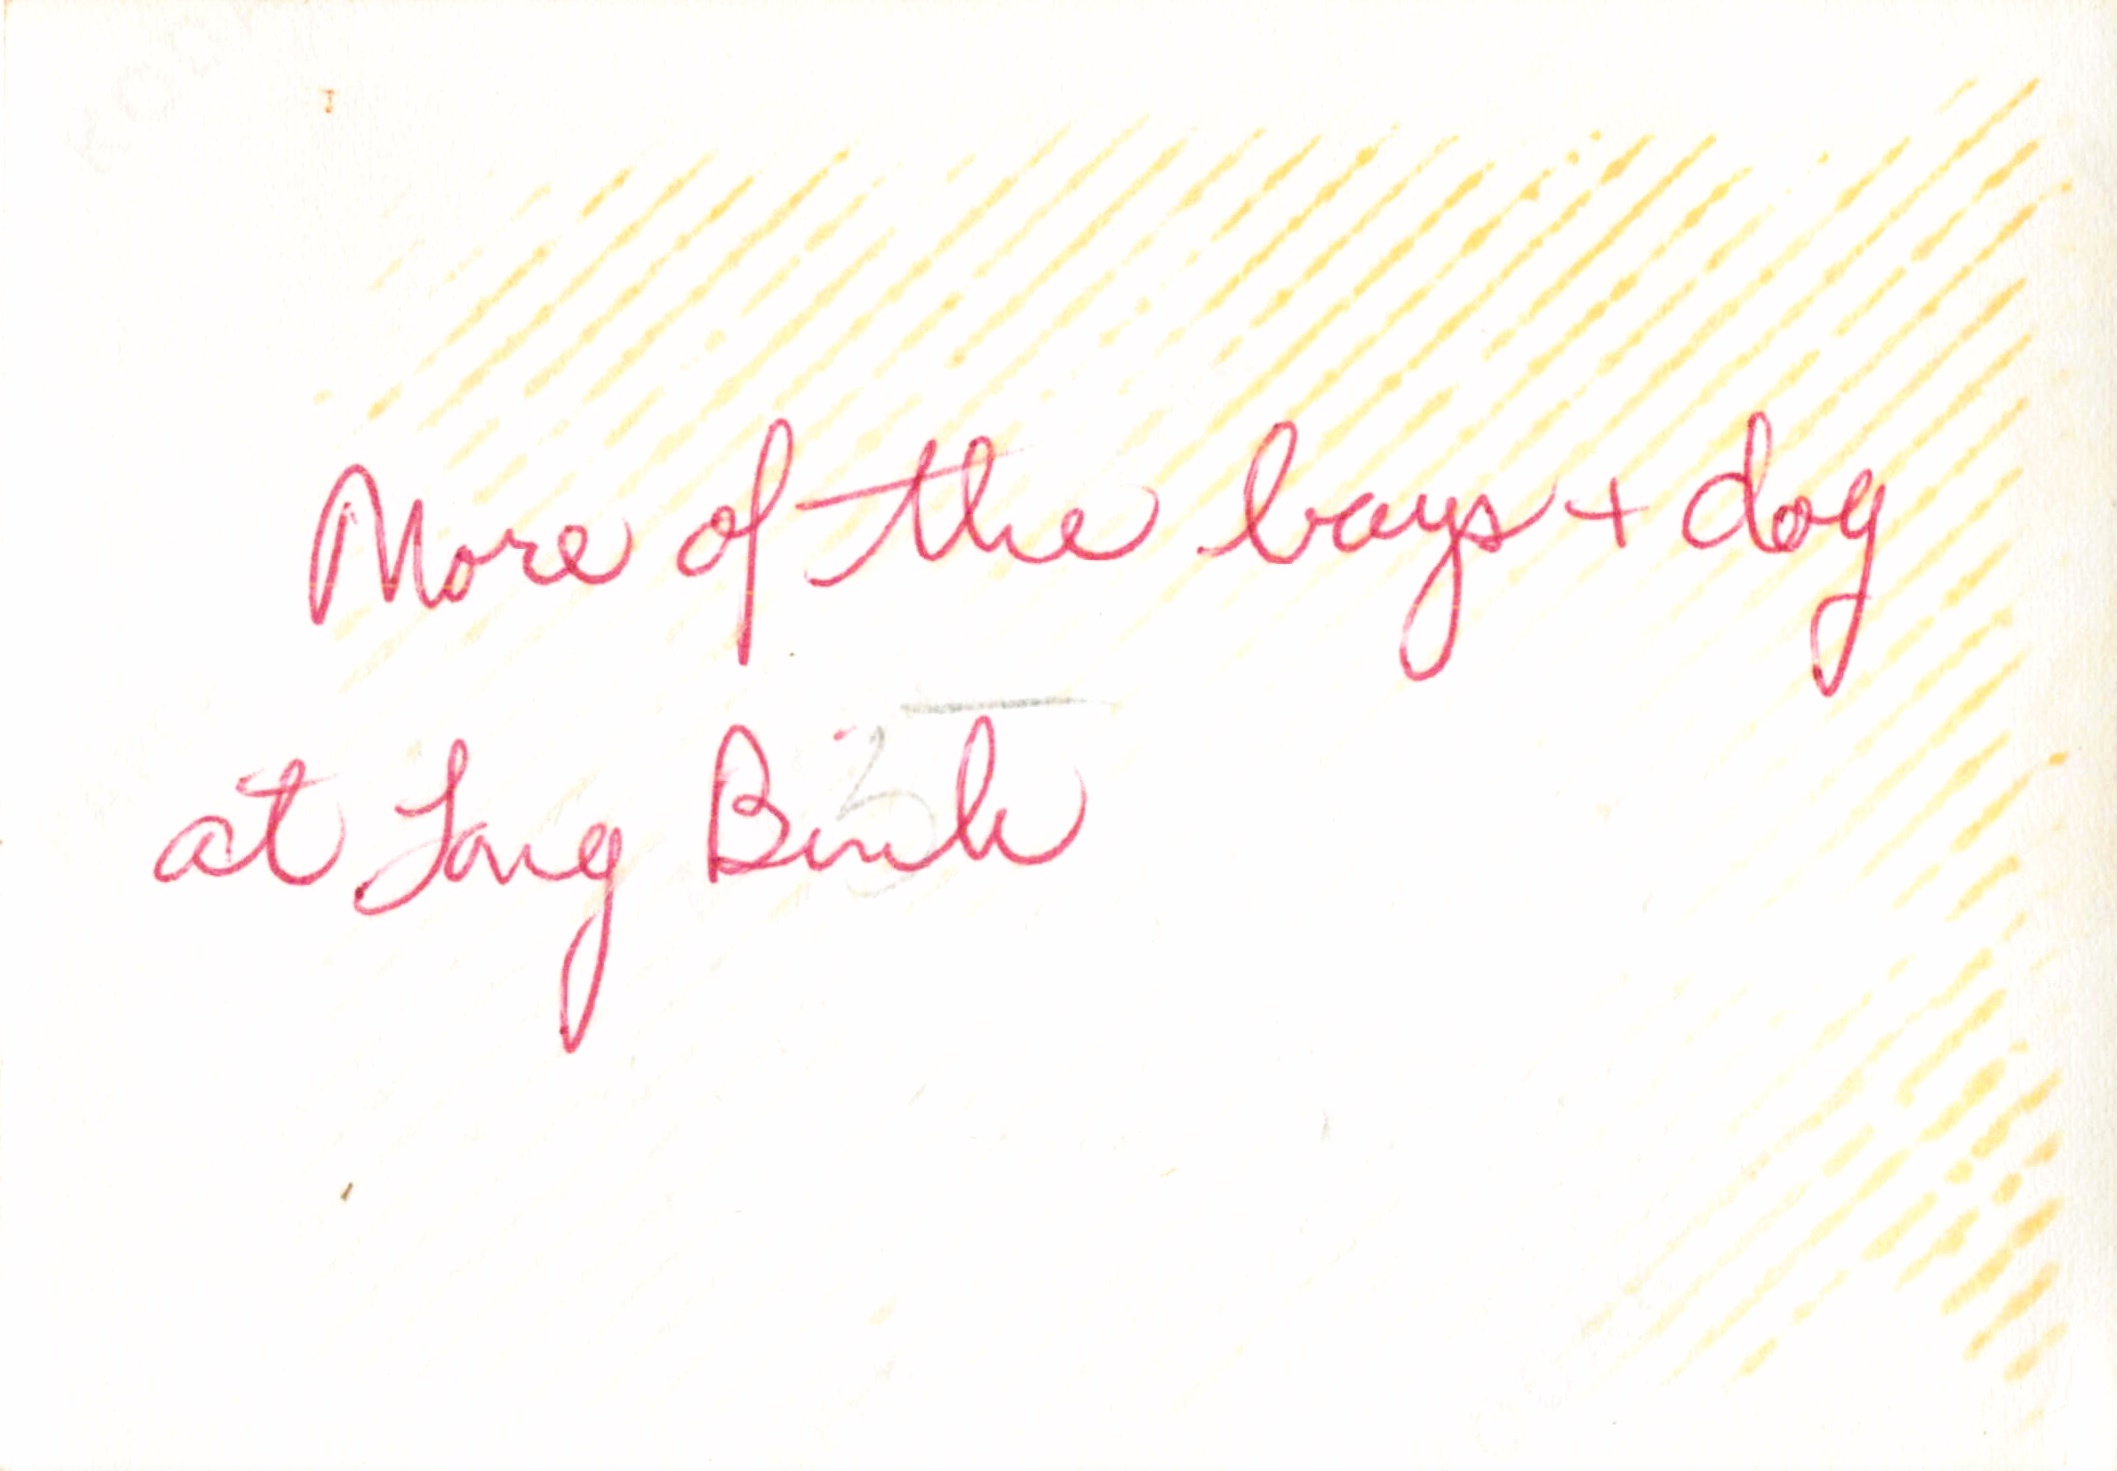 More of the boys + dog
at Long Binh